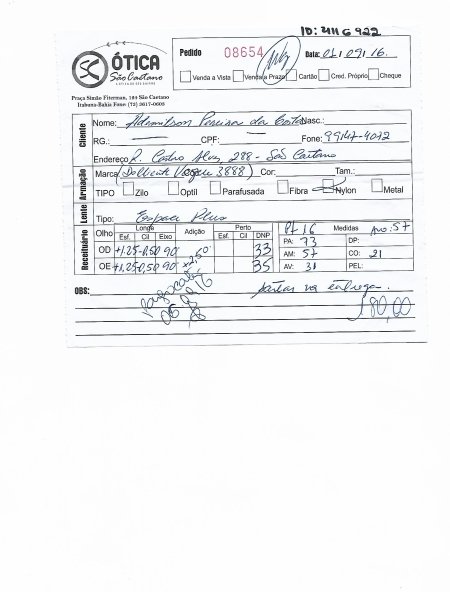 ID: 411G922
ÓTICA
São Caetano
Pedido 08654 Data: 01/09/16.
Venda a Vista Venda a Prazo Cartão Cred. Próprio Cheque
Praça Simão Fiterman, 194 São Caetano
Itabuna-Bahia Fone: (73) 3617-0605
Cliente
Nome: Pereira da Costa Nasc.:
RG.: CPF: Fone: 99147-4042
Endereço R. Castro Alves, 288 - São Caetano
Armação
Marca ( 3888) Cor: Tam.:
TIPO Zilo Optil Parafusada Fibra Nylon Metal
Lente
Tipo: Espace Plus
Receituário
Olho Longe Adição Perto Pt 16 Medidas Aro. 57
Esf. Cil Eixo Esf. Cil DNP PA: 73 DP:
OD +1,25 -0,50 90° +2,50 33 AM: 57 CO: 21
OE +1,25 -0,50 90° 35 AV: 31 PEL:
OBS: na entrega.
180,00